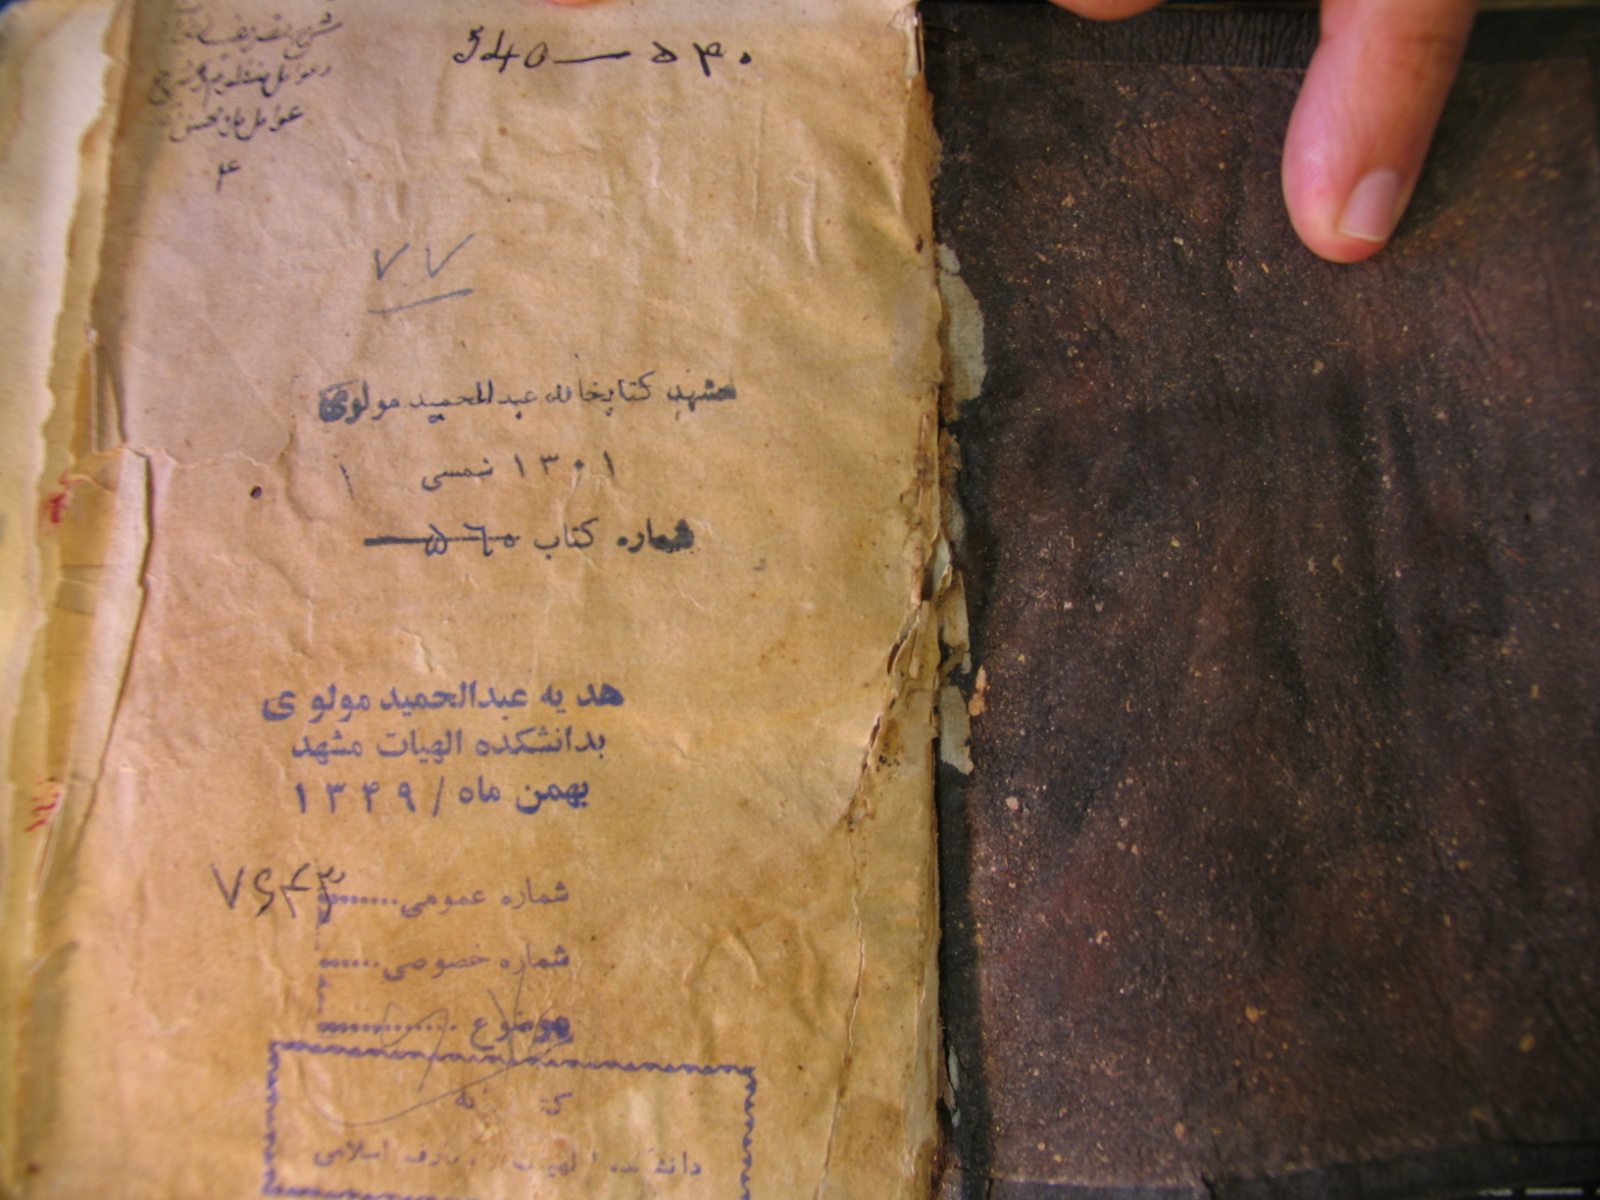 شرح تصریف
و عوامل منظومه و شرح
عوامل ملا محسن
۴
540 — ۵۴۰
۷۷
مشهد کتابخانه عبدالحمید مولوی
۱۳۰۱ شمسی
شماره کتاب ۵٦۰
هدیه عبدالحمید مولوی
بدانشکده الهیات مشهد
بهمن ماه / ۱۳۴۹
شماره عمومی ........ ۷۶۴۳
شماره خصوصی ......
موضوع ..............
دانشکده الهیات و معارف اسلامی